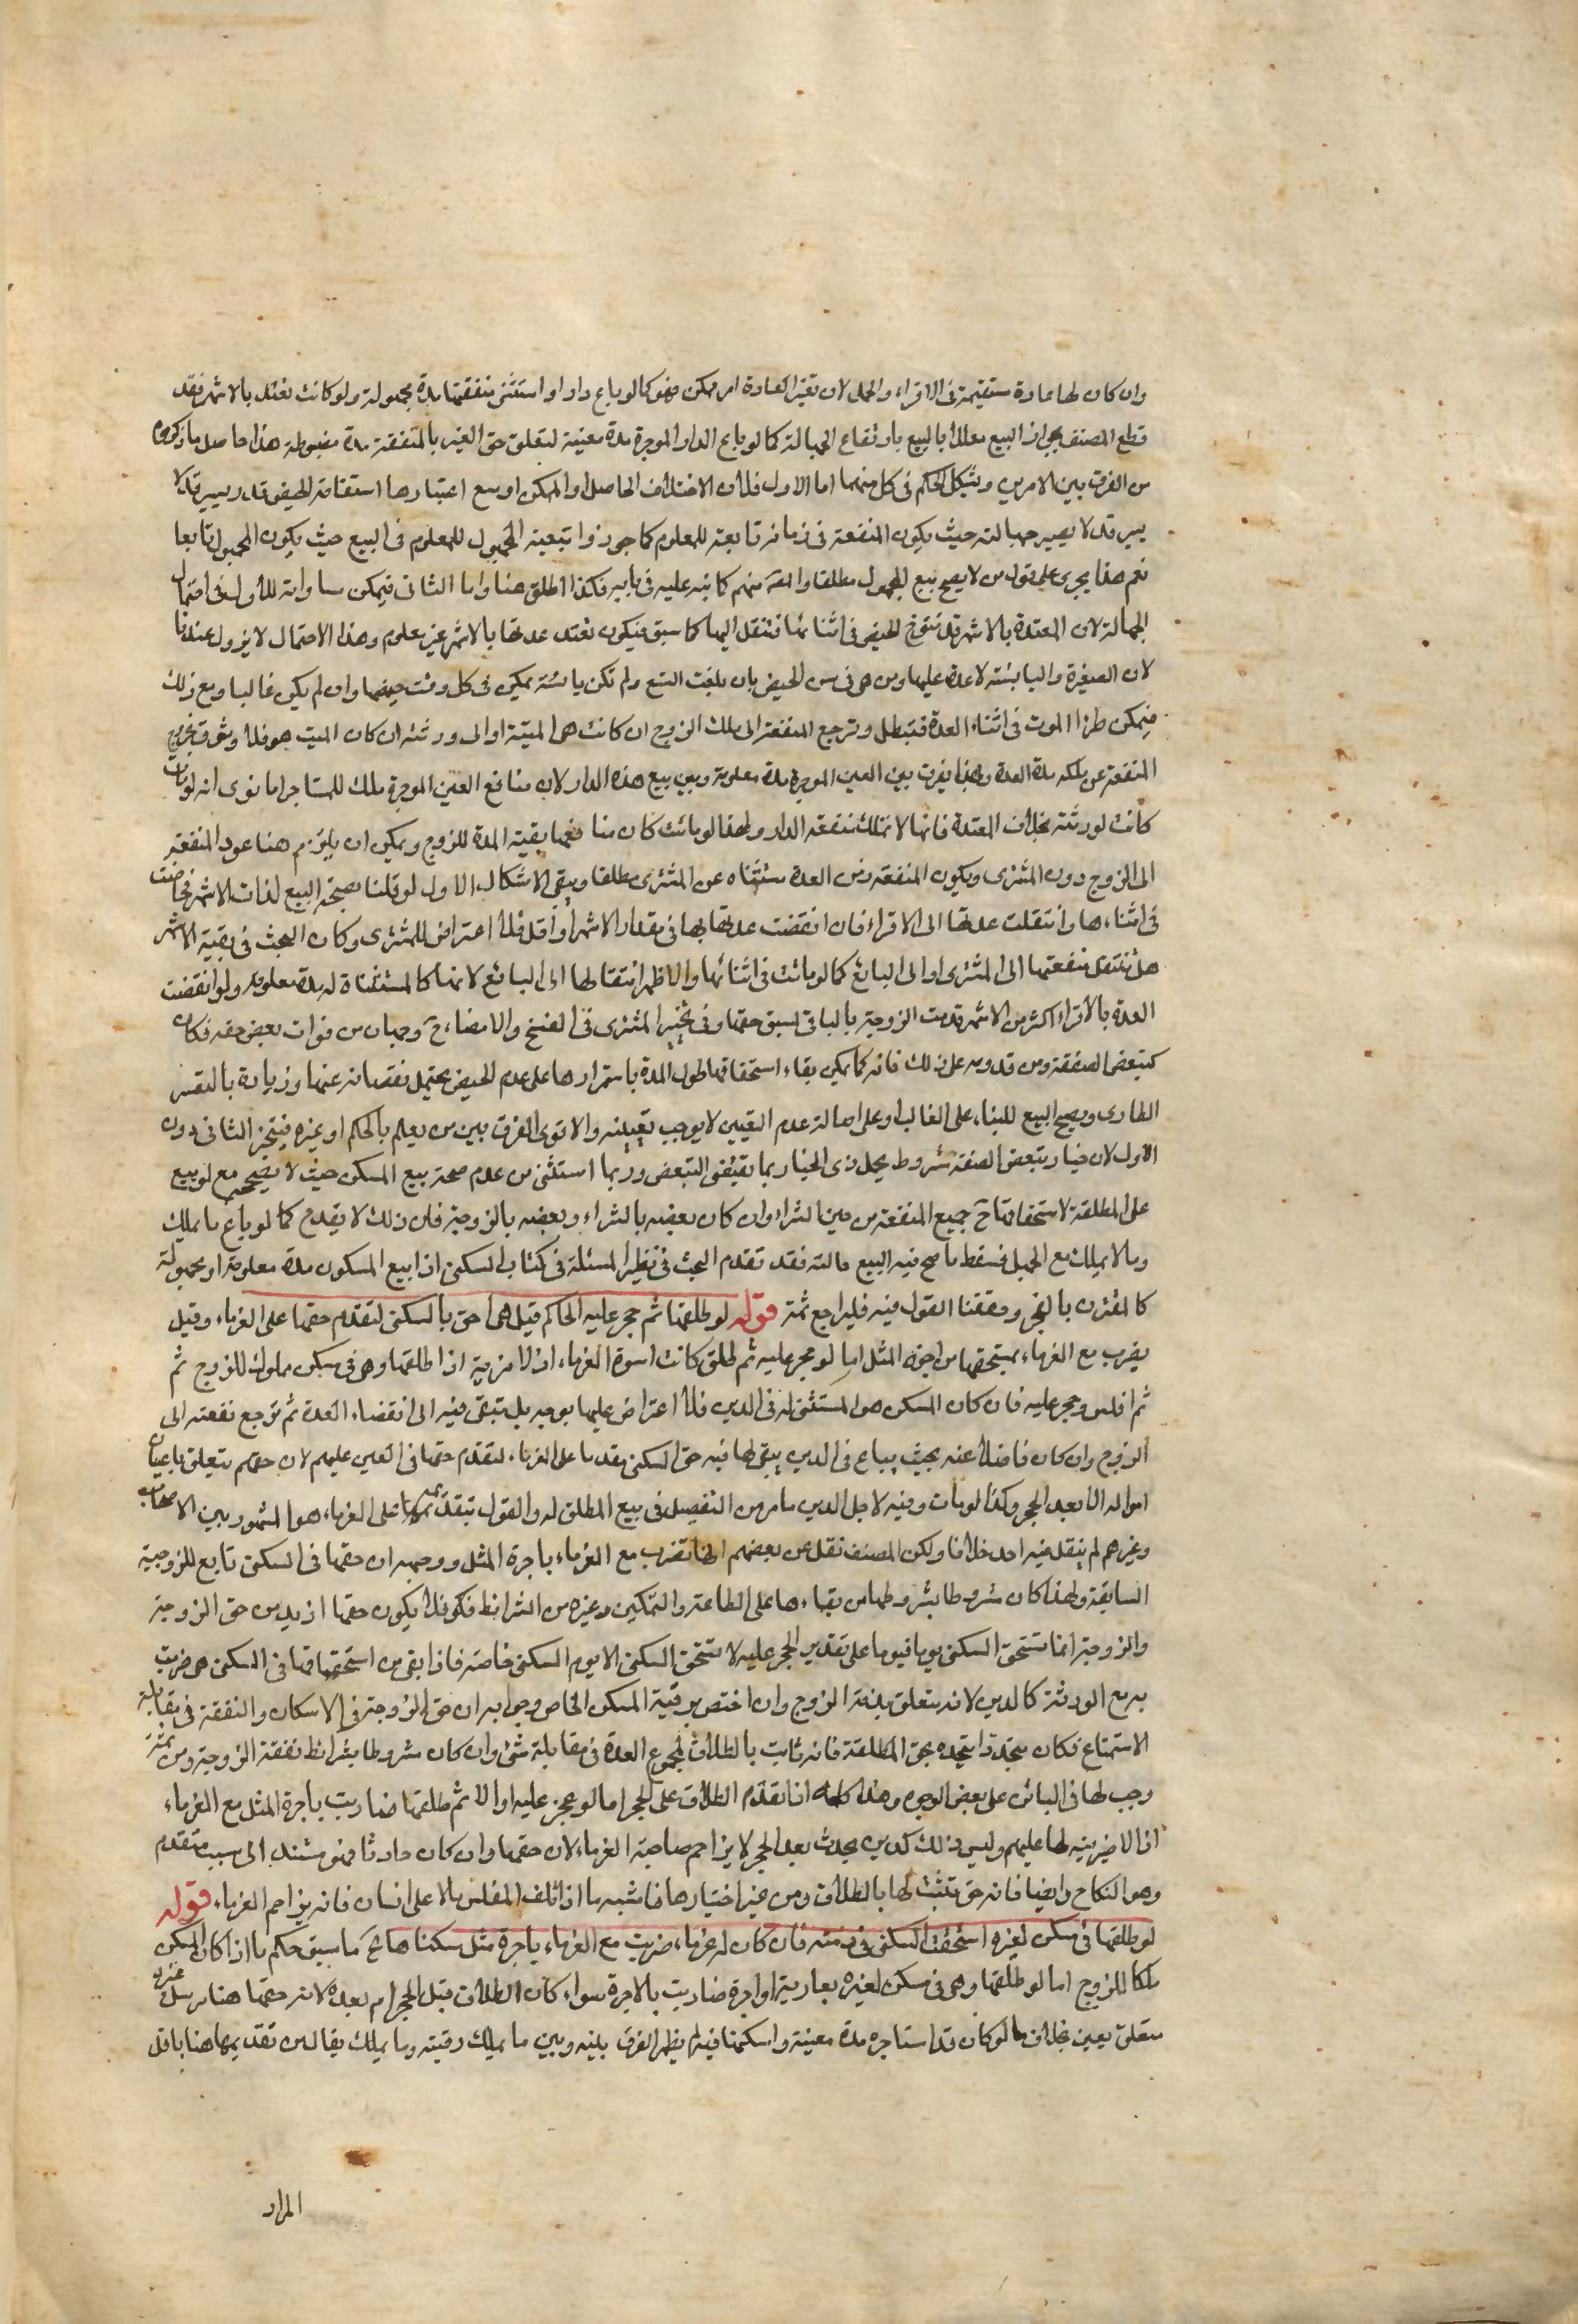 وان كان لها عادة مستقيمة فى الاقراء والحمل لان تغير العادة امر ممكن فهو كما لو باع دارا واستثنى منفعتها مدة مجهولة ولو كانت تعتد بالاشهر فقد
قطع المصنف بجواز البيع معللا بالبيع بارتفاع الجهالة كما لو باع الدار الموجرة مدة معينة لتعلق حق الغير بالمنفعة مدة مضبوطة هذا حاصل ما ذكروه
من الفرق بين الامرين ويشكل الحكم فى كل منهما اما الاول فلان الاختلاف الحاصل او الممكن او مع اعتبارها استقامة الحيض قدر يسير قد لا
يسير قد لا يصير جهالته حيث يكون المنفعة فى زمانه تابعة للمعلوم كما جوزوا تبعية المجهول للمعلوم فى البيع حيث يكون المجهول تابعا
نعم هذا يجرى على قول من لا يصح بيع المجهول مطلقا والعـ منهم كما نبه عليه فى بابه فكذا اطلق هنا واما الثانى فيمكن مساواته للاول فى احتمال
الجهالة لان المعتدة بالاشهر قد تتوقع الحيض فى اثنائها فتنتقل اليها كما سبق فيكون تعتد عدتها بالاشهر غير معلوم وهذا الاحتمال لا يزول عندنا
لان الصغيرة واليائسة لا عدة عليهما ومن هى فى سن الحيض بان بلغت التسع ولم تكن يائسة يمكن فى كل وقت حيضها وان لم يكن غالبا ومع ذلك
فيمكن طرؤ الموت فى اثناء العدة فتبطل وترجع المنفعة الى ملك الزوج ان كانت هى الميتة او الى ورثته ان كان الميت هو فلا وثوق بخروج
المنفعة عن ملكه مدة العدة وبهذا يفرق بين العين الموجرة مدة معلومة وبين بيع هذه الدار لان منافع العين الموجرة ملك للمستاجر اما نوى انه لو مات
كانت لورثته بخلاف المعتدة فانها لا تملك منفعة الدار ولهذا لو ماتت كان منافعها بقية المدة للزوج ويمكن ان يلتزم هنا عود المنفعة
الى الزوج دون المشترى ويكون المنفعة زمن العدة مستثناه عن المشترى مطلقا ويبقى الاشكال الاول لو قلنا بصحة البيع لذات الاشهر فحاضت
فى اثناءها وانتقلت عدتها الى الاقراء فان انقضت عدتها بها فى مقدار الاشهر او اقل فلا اعتراض للمشترى وكان البحث فى بقية الاشهر
هل تنتقل منفعتها الى المشترى او الى البائع كما لو ماتت فى اثنائها والاظهر انتقالها الى البائع لانها كالمستثناة له مدة معلومة ولو انقضت
العدة بالاقراء اكثر من الاشهر قدمت الزوجة بالباقى لسبق حقها وفى تخير المشترى فى الفسخ والامضاء ح وجهان من فوات بعض حقه فكان
كتبعض الصفقة ومن قدومه على ذلك فانه كما يمكن بقاء استحقاقها طول المدة باستمرارها على عدم الحيض يحتمل نقصانه عنها وزيادة بالتغير
الطارى ويصح البيع للبناء على الغالب او على اصالة عدم التعيين لا يوجب تعيينه والاقوى الفرق بين من يعلم بالحكم او غيره فيتخير الثانى دون
الاول لان خيار تبعض الصفقة مشروط بجهل ذى الخيار بما يقتضى التبعض وربما استثنى من عدم صحة بيع المسكن حيث لا يصح مع لو بيع
على المطلقة لاستحقاقها ح جميع المنفعة من حين الشراء وان كان بعضه بالشراء وبعضه بالزوجية فان ذلك لا يقدح كما لو باع ما يملك
وما لا يملك مع الجهل بقسط ما صح فيه البيع حالته فقد تقدم البحث فى نظير المسئلة فى كتاب السكنى اذا بيع المسكون مدة معلومة او مجهولة
كالمقترن بالعمر وحققنا القول فيه فليراجع ثمة قوله لو طلقها ثم حجر عليه الحاكم قيل هى احق بالسكنى لتقدم حقها على الغرماء وقيل
يضرب مع الغرماء بمستحقها من اجرة المثل اما لو حجر عليه ثم طلق كانت اسوة الغرماء اذ لا مزية اذا طلقها وهى فى مسكن مملوك للزوج ثم
ثم افلس وحجر عليه فان كان المسكن هو المستثنى له فى الدين فلا اعتراض عليها بوجه بل تبقى فيه الى انقضاء العدة ثم ترجع نفعته الى
الزوج وان كان فاضلا عنه بحيث يباع فى الدين يبقى لها فيه حق السكنى مقدما على الغرماء لتقدم حقها فى العين عليهم لان حقهم يتعلق باعيان
امواله الا بعد الحجر وكذا لو مات وفيه لاجل الدين ما مر من التفصيل فى بيع المطلق له والقول بتقدمها على الغرماء هو المشهور بين الاصحاب
وغيرهم لم ينقل فيه احد خلافا ولكن المصنف نقل عن بعضهم انها تضرب مع الغرماء باجرة المثل ووجهه ان حقها فى السكنى تابع للزوجية
السابقة ولهذا كان مشروطا بشروطها من بقاءها على الطاعة والتمكين وغيره من الشرائط فكو فلا يكون حقها ازيد من حق الزوجة
والزوجة انما تستحق السكنى يوما فيوما على تقدير الحجر عليه لا تستحق السكنى الا يوم السكنى خاصة فاذا بقى من استحقاقها فى السكنى هى ضربت
به مع الورثة كالدين لانه يتعلق بذمة الزوج وان اختص برقبة المسكن الخاص وجوابه ان حق الزوجة فى الاسكان والنفقة فى مقابلة
الاستمتاع فكان متجددا بتجدده بحق المطلقة فانه ثابت بالطلاق لمجموع العدة فى مقابلة شئ وان كان مشروطا بشرائط نفقة الزوجة ومن ثمة
وجب لها فى البائن على بعض الوجوه وهذا كله اذا تقدم الطلاق على الحجر اما لو حجر عليه اولا ثم طلقها ضاربت باجرة المثل مع الغرماء
اذ لا مزية لها عليهم وليس ذلك كدين يحدث بعد الحجر لا يزاحم صاحبه الغرماء لان حقها وان كان حادثا فهو مستند الى سبب متقدم
وهو النكاح وايضا فانه حق يثبت لها بالطلاق ومن غير اختيارها فاشبه ما اذا اتلف المفلس مالا على انسان فانه يزاحم الغرماء قوله
لو طلقها فى مسكن لغيره استحقت السكنى فى ذمته فان كان له غرماء ضربت مع الغرماء باجرة مثل سكناها ح ما سبق حكم ما اذا كان المسكن
ملكا للزوج اما لو طلقها وهى فى مسكن لغيره بعارية او اجرة ضاربت بالاجرة سواء كان الطلاق قبل الحجر ام بعده لانه حقها هنا مرسل غير
متعلق بعين بخلاف ما لو كان قد استاجره مدة معينة واسكنها فيه لم يظهر الفرق بينه وبين ما يملك رقبته وما يملك يقال من تقديمها هنا باقل
المراد